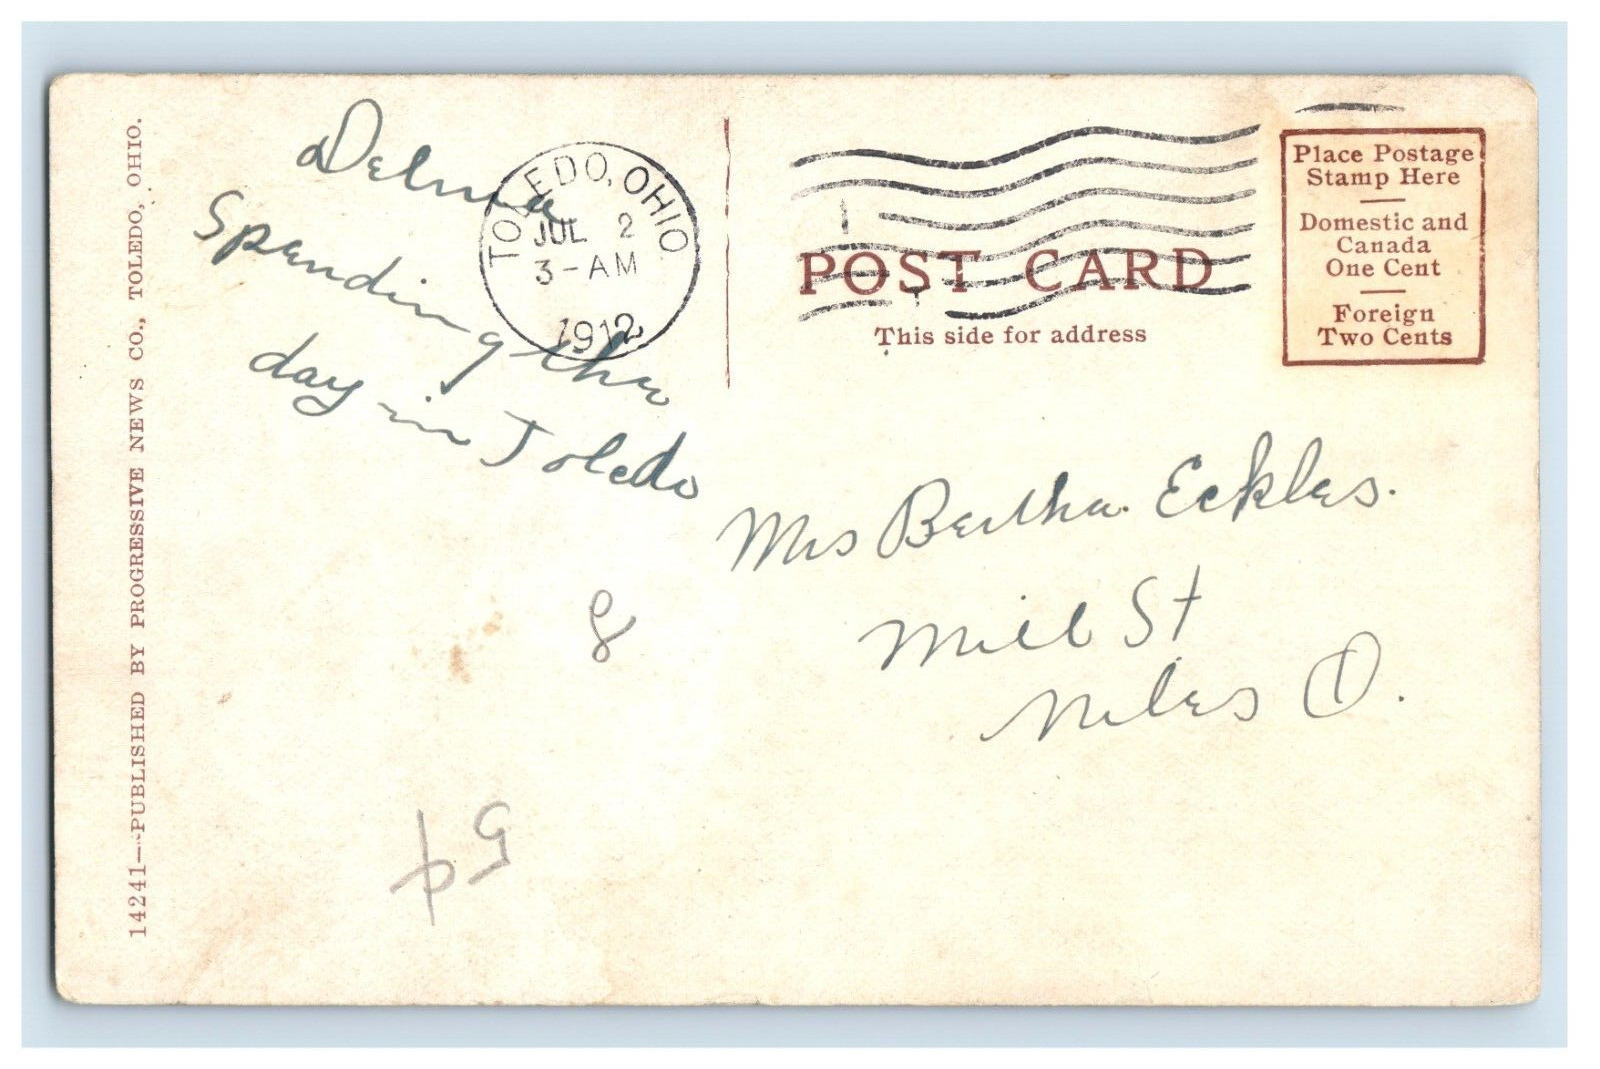 14241—PUBLISHED BY PROGRESSIVE NEWS CO., TOLEDO, OHIO.
Delma
Spending the
day in Toledo
TOLEDO, OHIO
JUL 2
3-AM
1912
POST CARD
This side for address
Place Postage
Stamp Here
Domestic and
Canada
One Cent
Foreign
Two Cents
Mrs Bertha Eckles.
Mill St
Niles O.
8
5¢